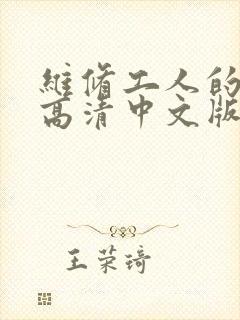 維脩工人的
高清中文版
王荣琦